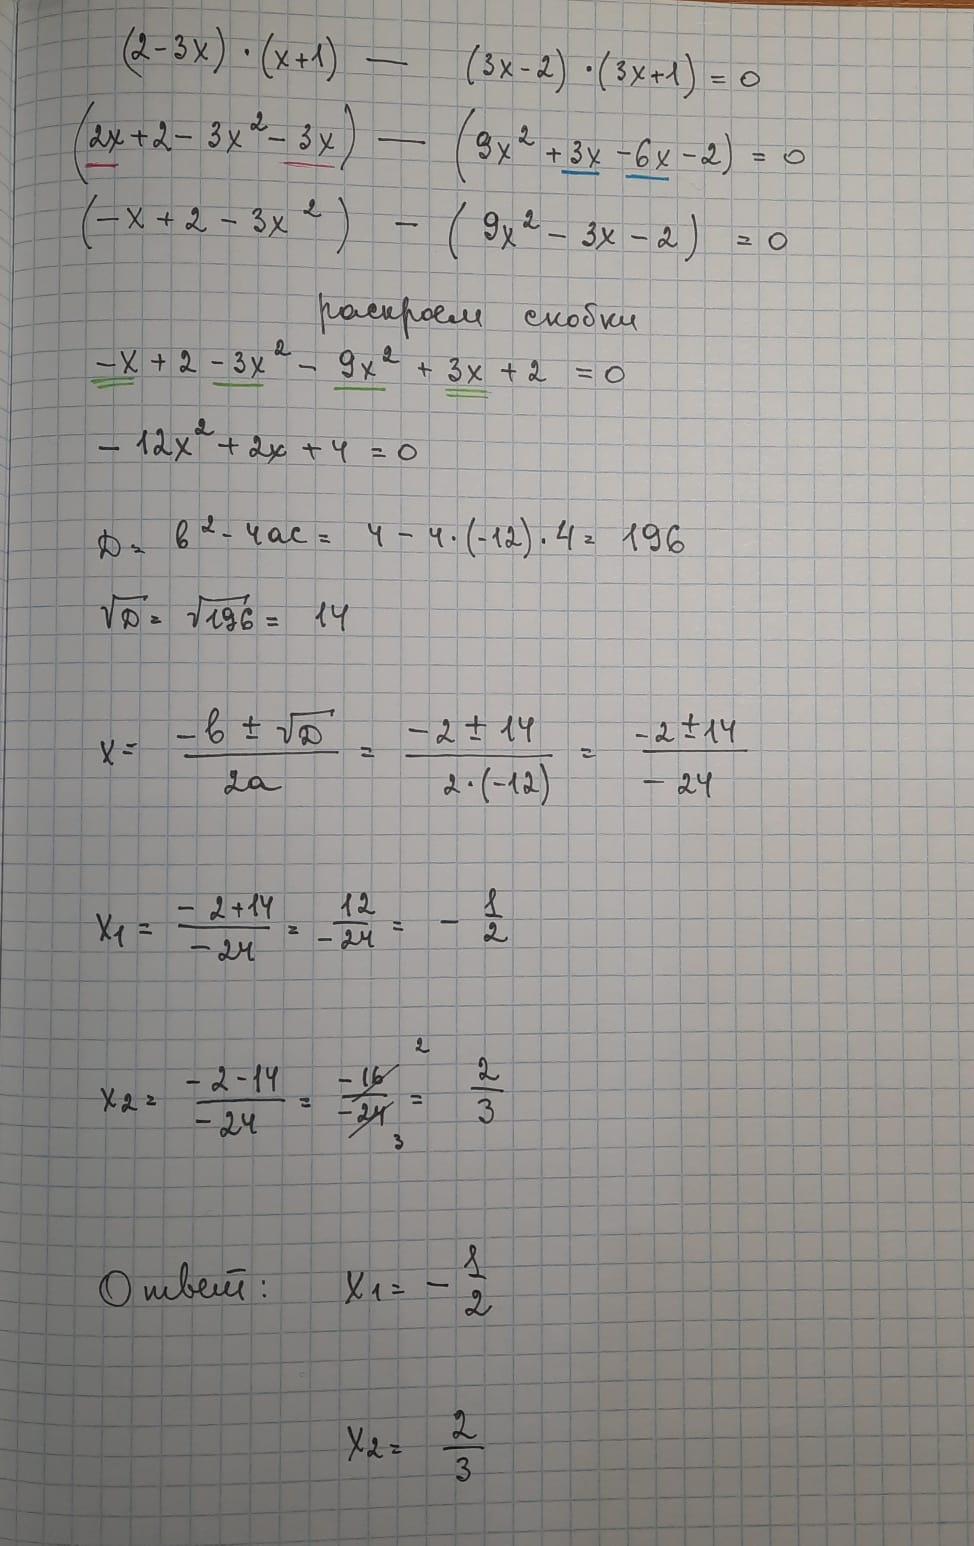 (2-3x)·(x+1) — (3x-2)·(3x+1) = 0
(2x+2-3x²-3x) — (9x²+3x-6x-2) = 0
(-x+2-3x²) - (9x²-3x-2) = 0
раскроем скобки
-x+2-3x²-9x²+3x+2 = 0
-12x²+2x+4 = 0
D = b²-4ac = 4-4·(-12)·4 = 196
√D = √196 = 14
x = (-b ± √D)/(2a) = (-2 ± 14)/(2·(-12)) = (-2 ± 14)/(-24)
x1 = (-2+14)/(-24) = 12/(-24) = - 1/2
2
x2 = (-2-14)/(-24) = (-16)/(-24) = 2/3
3
Ответ: x1 = - 1/2
x2 = 2/3